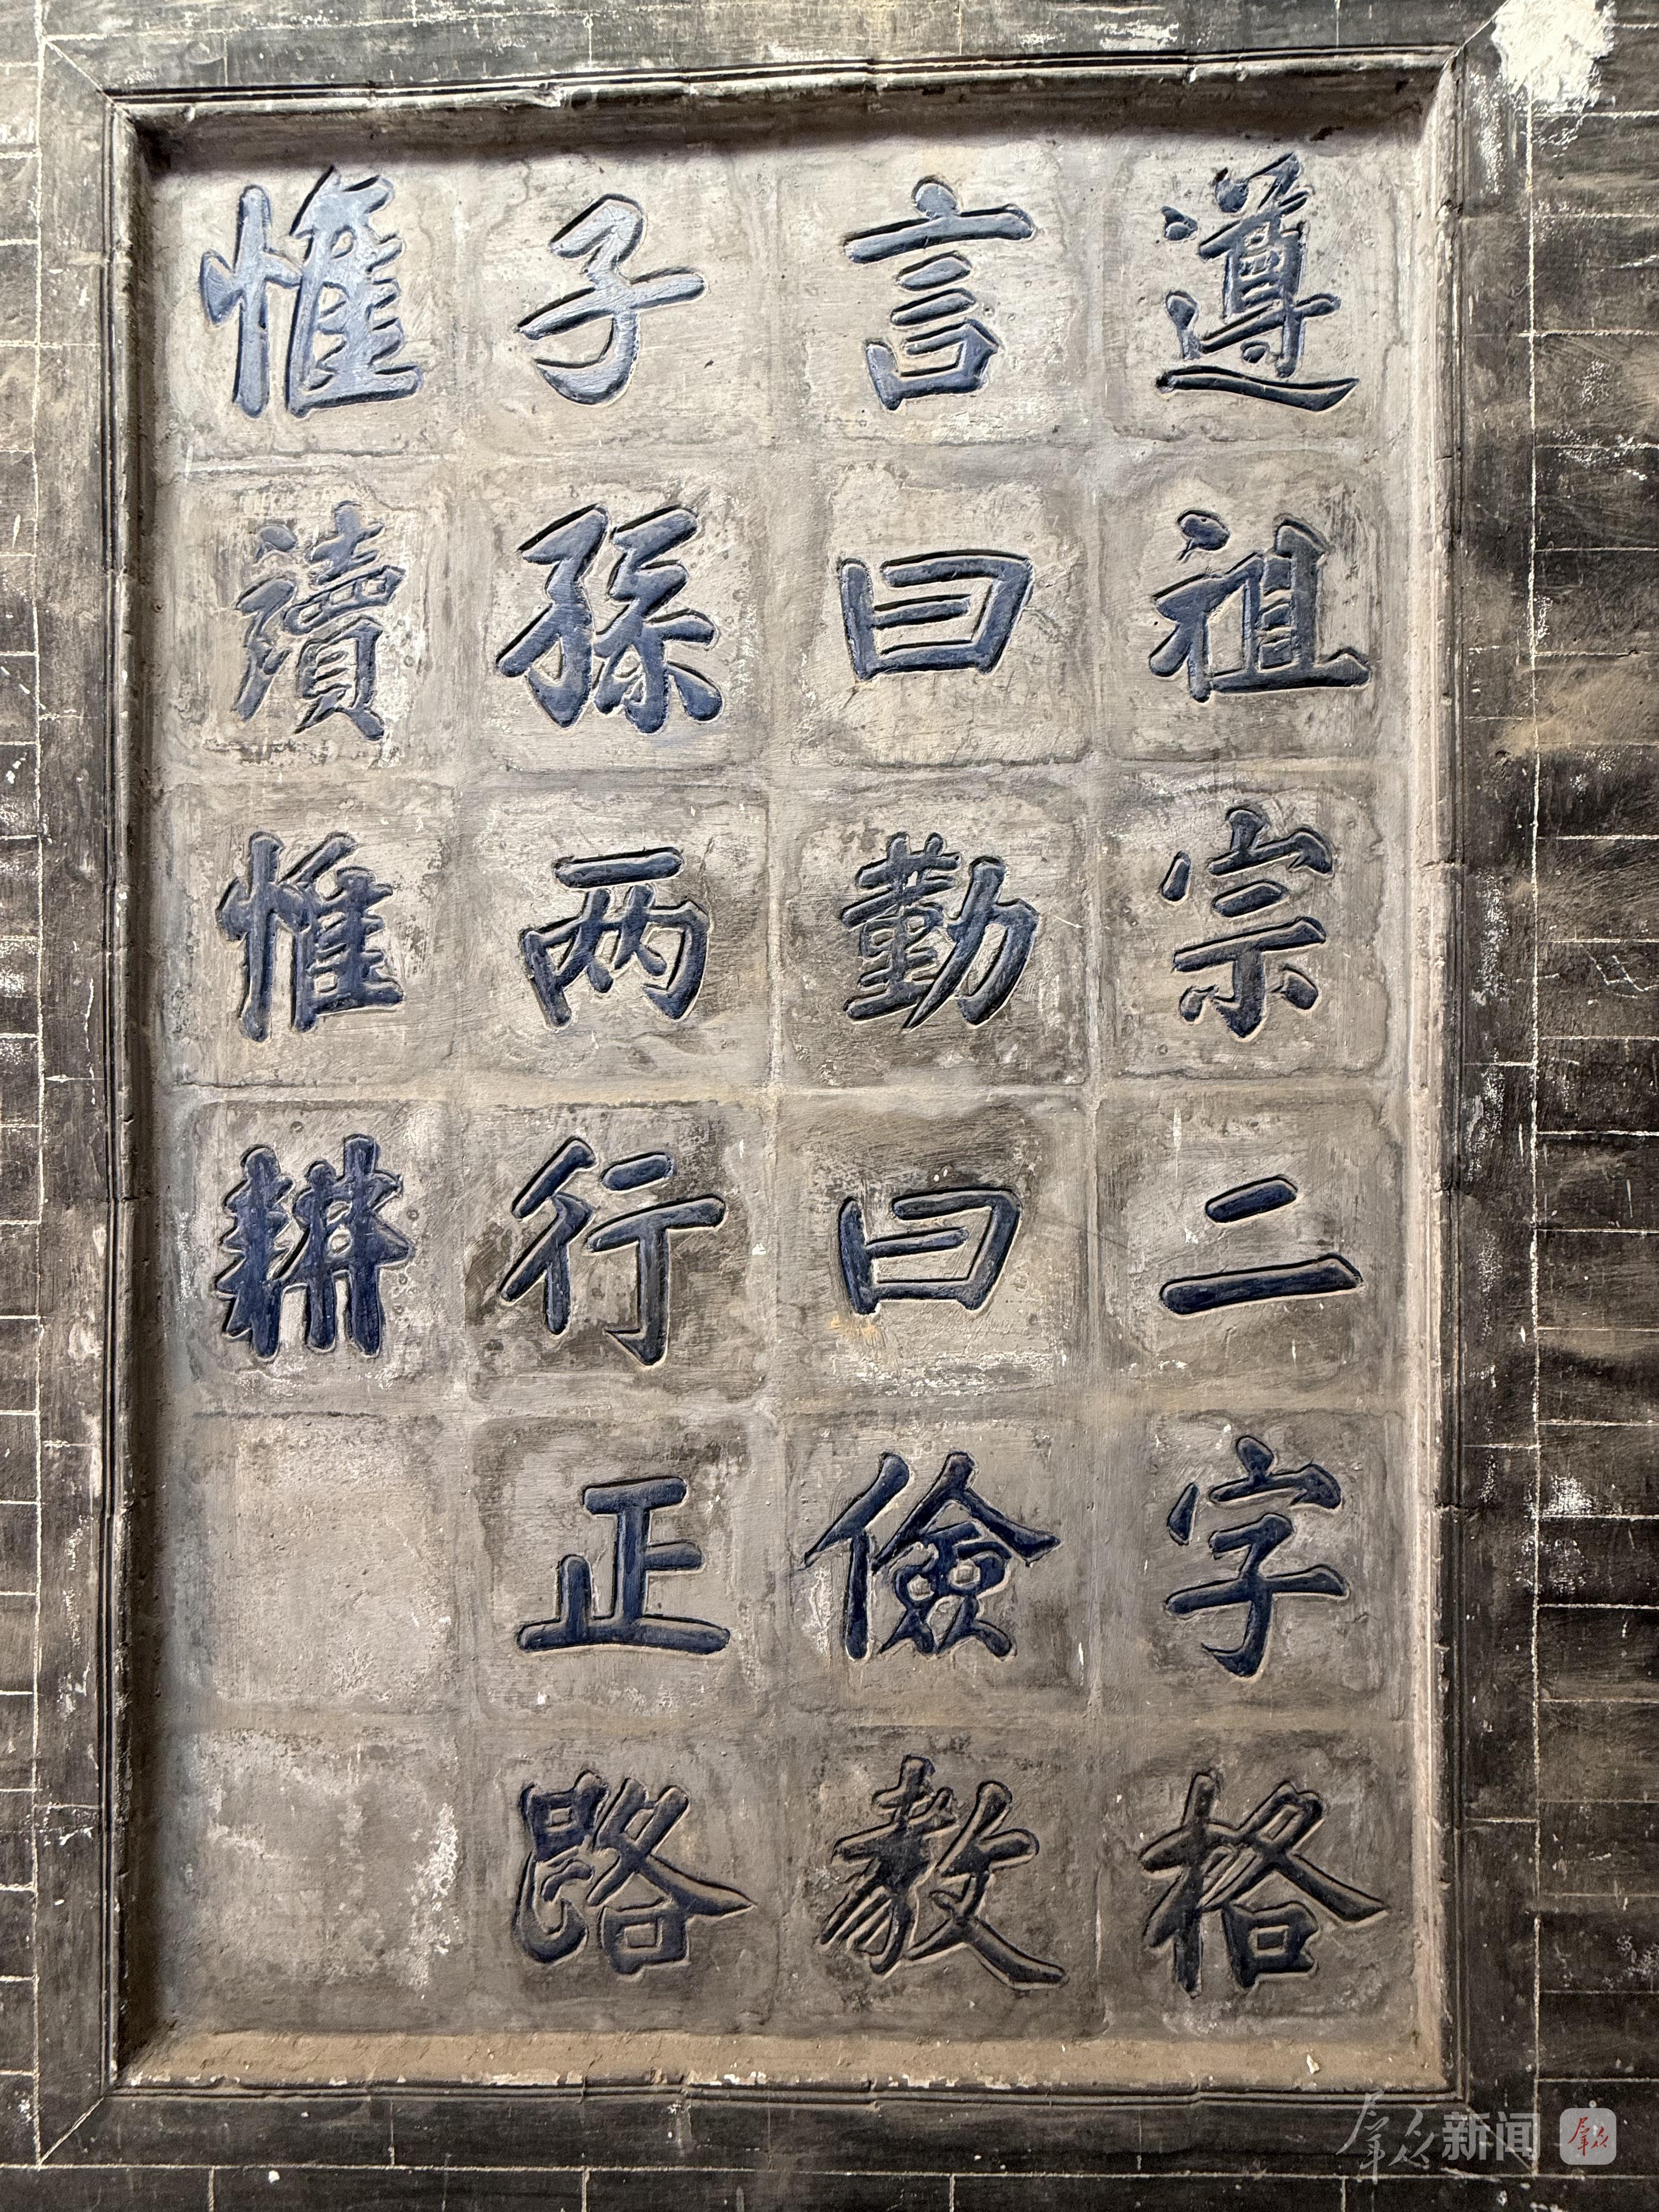 遵祖宗二字格
言曰勤曰儉教
子孫两行正路
惟讀惟耕
群众新闻
群众